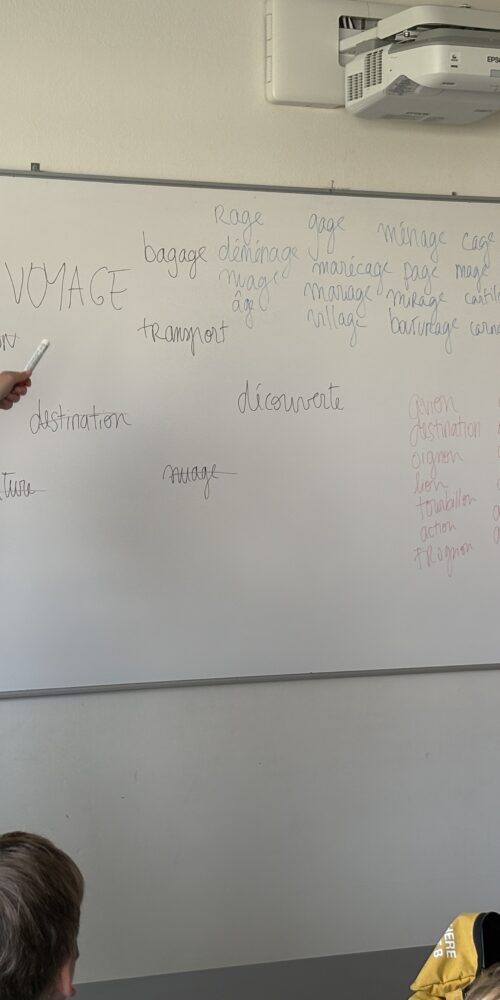 EPS
Rage gage ménage cage
bagage déménage marécage page mage
VOYAGE nuage mariage mirage
âge village
transport
découverte
destination
nuage
avion
destination
oignon
lion
tourbillon
action
trognon